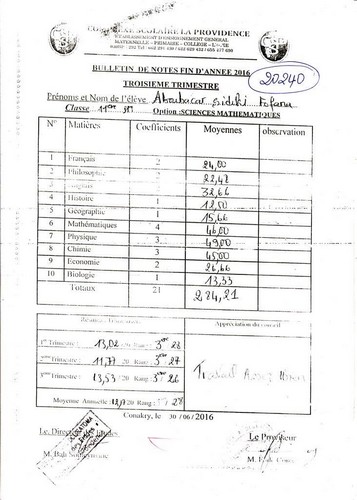 COMPLEXE SCOLAIRE LA PROVIDENCE
ETABLISSEMENT D'ENSEIGNEMENT GENERAL
MATERNELLE - PRIMAIRE - COLLEGE - LYCEE
BULLETIN DE NOTES FIN D'ANNEE 2016
20240
TROISIEME TRIMESTRE
Prénoms et Nom de l'élève Aboubacar Sidiki Fofana
Classe 11ème SM Option :SCIENCES MATHEMATIQUES
N° Matières Coefficients Moyennes observation
1 Français 2 24,00
2 Philosophie 2 22,48
3 Anglais 32,66
4 Histoire 1 12,00
5 Geographie 1 15,66
6 Mathématiques 4 46,00
7 Physique 3 49,00
8 Chimie 3 45,00
9 Economie 2 26,66
10 Biologie 1 13,33
Totaux 21 284,21
Appréciation du conseil
1er Trimestre : 13,02 /20 Rang : 3ème 28
2ème Trimestre : 11,77 /20 Rang : 3ème 27
3ème Trimestre : 13,53 /20 Rang : 3ème 26
Travail Assez
Moyenne Annuelle : /20 Rang :
Conakry, le 30 /06 /2016
Le Proviseur
M. Bah